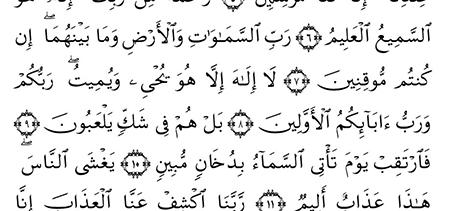 ٱلسَّمِيعُ ٱلْعَلِيمُ ٦ رَبِّ ٱلسَّمَـٰوَٰتِ وَٱلْأَرْضِ وَمَا بَيْنَهُمَآ ۖ إِن
كُنتُم مُّوقِنِينَ ٧ لَآ إِلَـٰهَ إِلَّا هُوَ يُحْىِۦ وَيُمِيتُ ۖ رَبُّكُمْ
وَرَبُّ ءَابَآئِكُمُ ٱلْأَوَّلِينَ ٨ بَلْ هُمْ فِى شَكٍّ يَلْعَبُونَ ٩
فَٱرْتَقِبْ يَوْمَ تَأْتِى ٱلسَّمَآءُ بِدُخَانٍ مُّبِينٍ ١٠ يَغْشَى ٱلنَّاسَ ۖ
هَـٰذَا عَذَابٌ أَلِيمٌ ١١ رَّبَّنَا ٱكْشِفْ عَنَّا ٱلْعَذَابَ إِنَّا